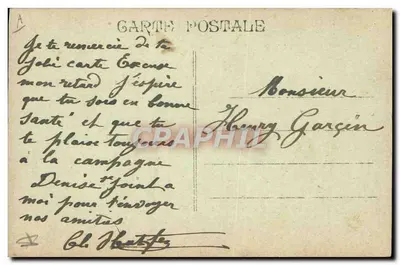 CARTE POSTALE
Je te remercie de ta
jolie carte Excuse
mon retard J'espère
que tu sois en bonne
santé et que tu
te plaise toujours
à la campagne
Denise se joint a
moi pour t'envoyer
nos amities
Ch
Monsieur
Henry Garçin